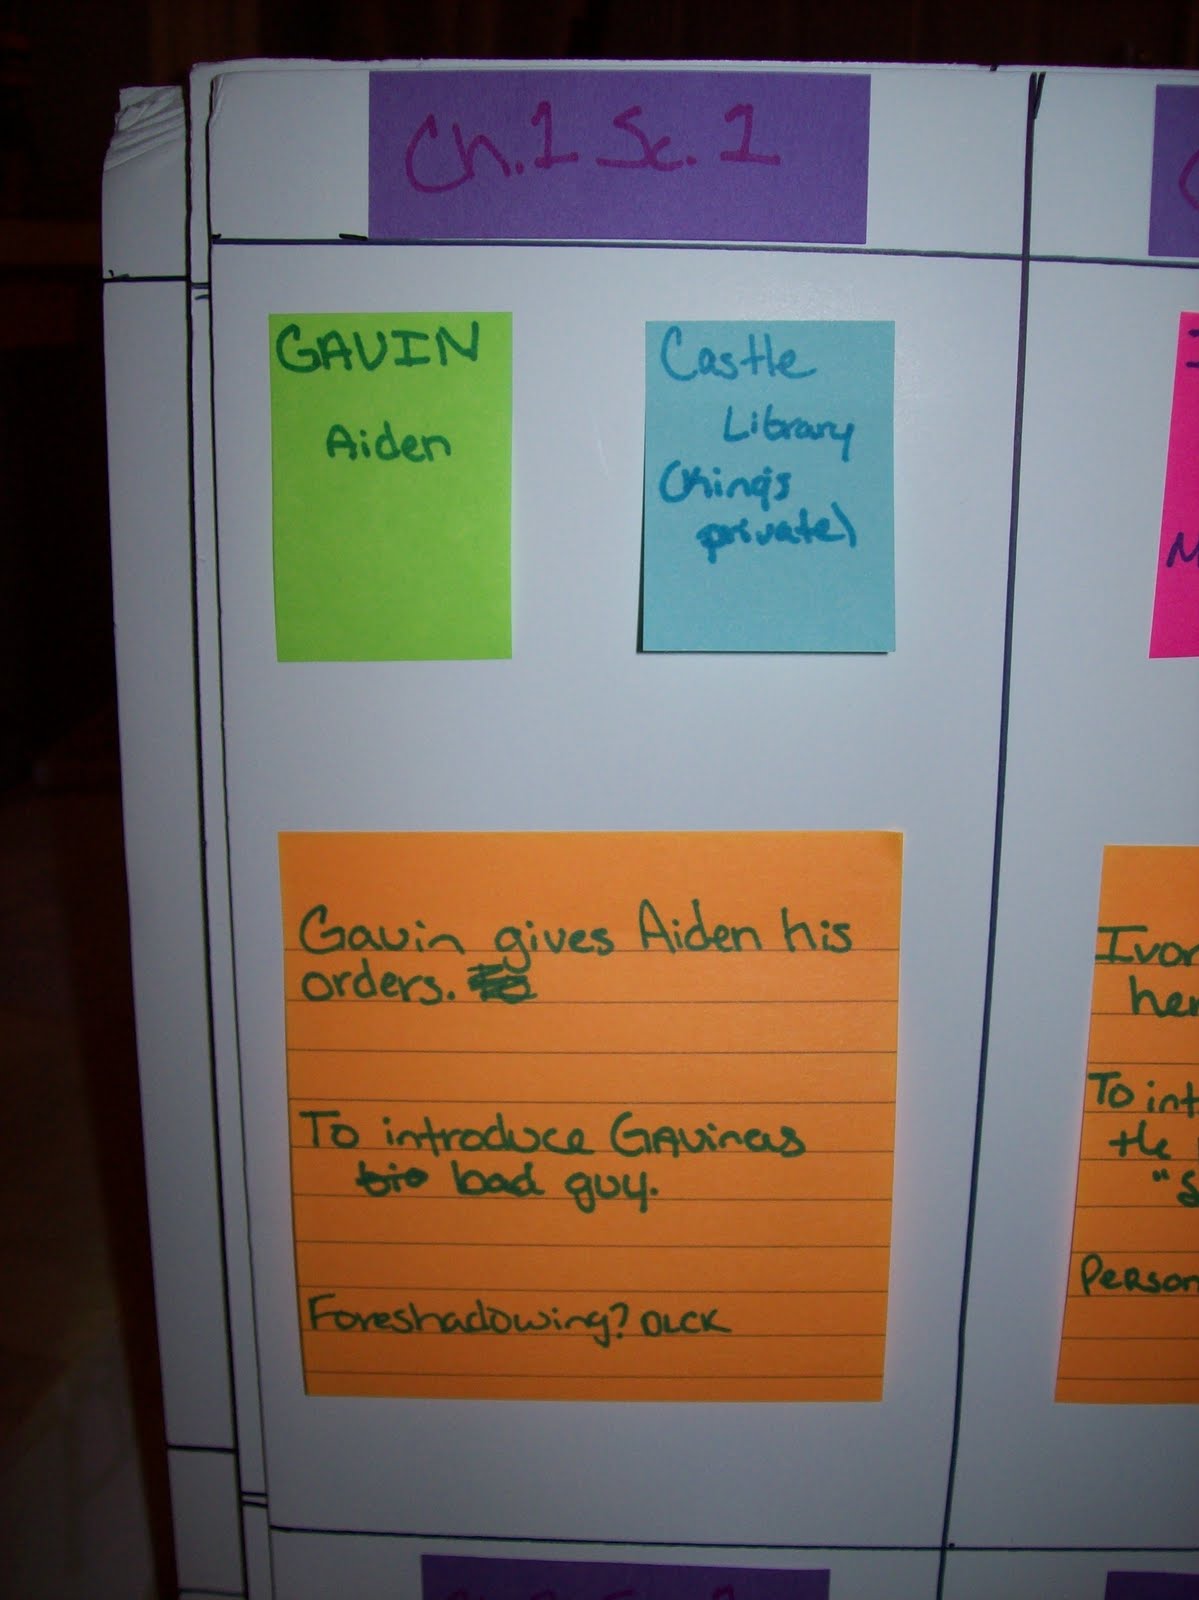 Ch. 1 Sc. 1
GAVIN
Aiden
Castle
Library
(King's
private)
Gavin gives Aiden his
orders.
To introduce Gavin as
bad guy.
Foreshadowing?
Ivor
her
To int
the
"S
Person